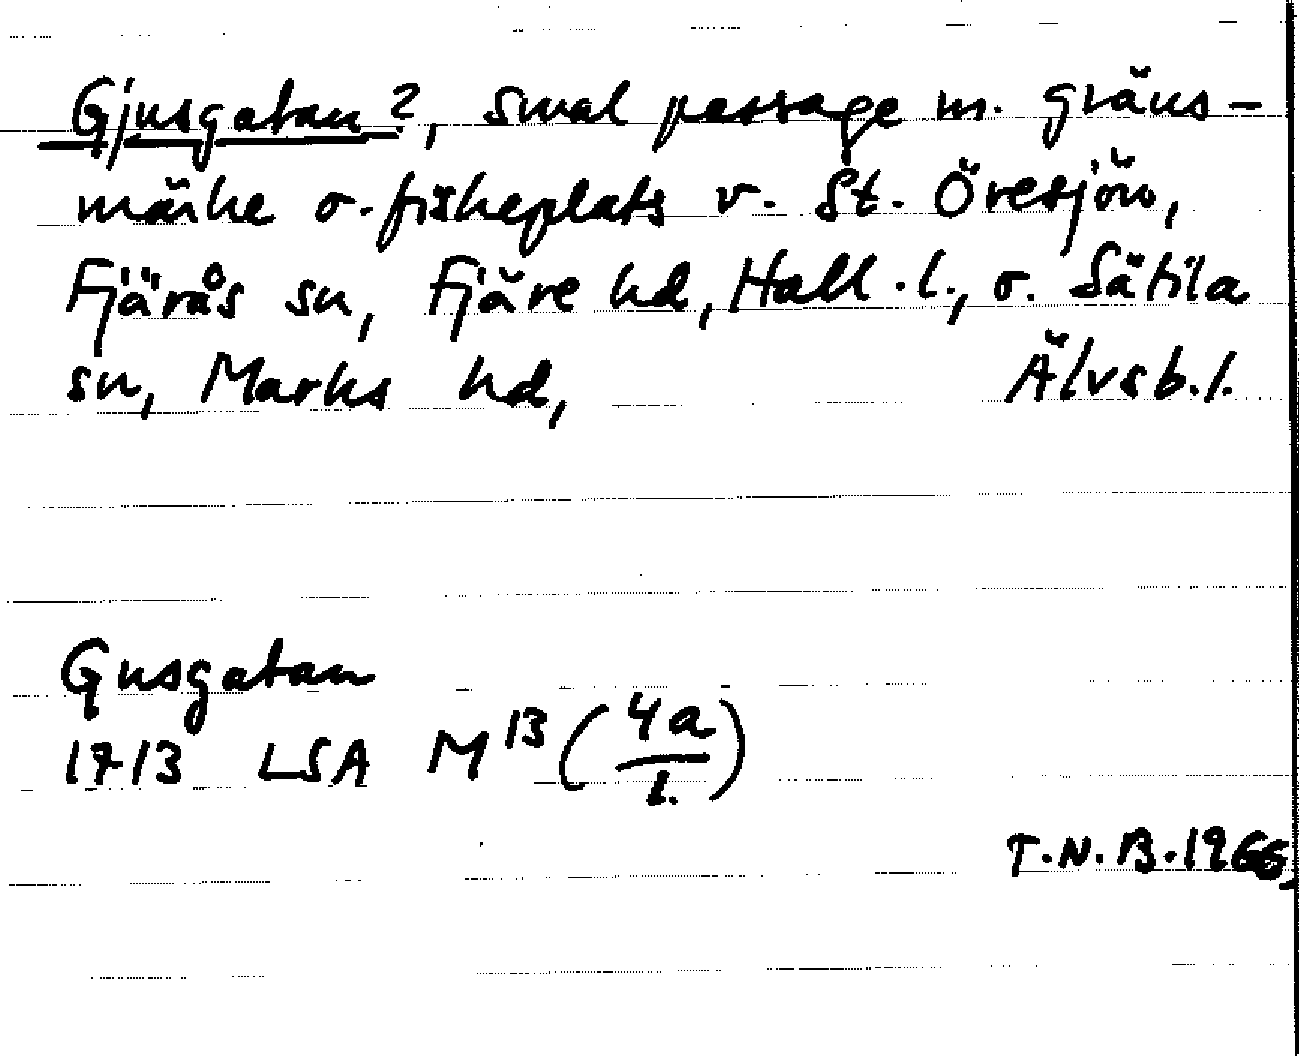 Gjusgatan?, smal passage m. gräns-
märke o. fiskeplats v. St. Öresjön,
Fjärås sn, Fjäre hd, Hall. l., o. Sätila
sn, Marks hd, Älvsb. l.
Gusgatan
1713 LSA M¹³ (4a/1.)
T.N.B. 1966,